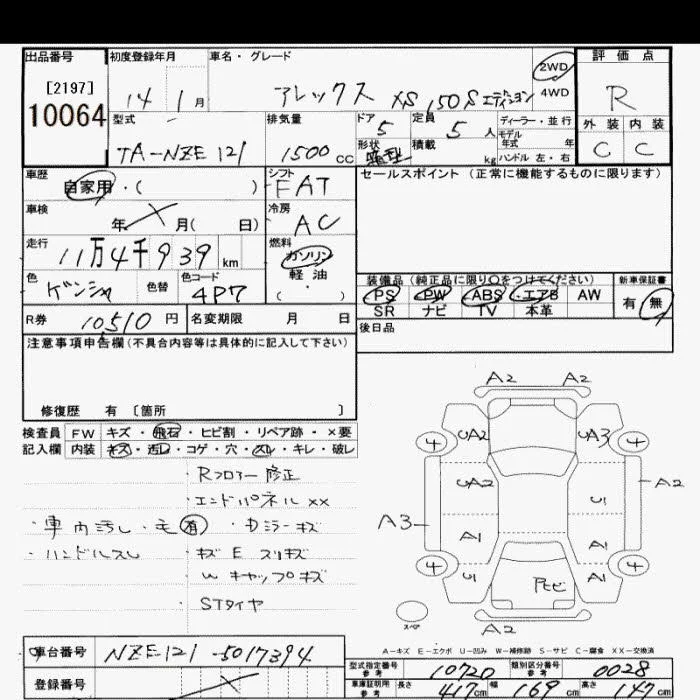 出品番号 初度登録年月 車名・グレード 評価点
[2197] 14 1月 アレックス XS 150Sエディション 2WD 4WD R
10064 型式 排気量 ドア 定員 ディーラー・並行 外装 内装
TA-NZE121 1500cc 5 5人 モデル年式 年 C C
形状 箱型 積載 kg ハンドル 左・右
車歴 シフト セールスポイント(正常に機能するものに限ります)
自家用・( ) FAT
車検 冷房
年 月( 日) AC
走行 燃料
11万4千939km ガソリン
軽油
( ・ )
色 色替 色コード 装備品(純正品に限り○をつけてください) 新車保証書
ゲンシャ 4P7 PS PW ABS エアB AW 有・無
SR ナビ TV 本革
R券 10510円 名変期限 月 日 後日品
注意事項申告欄(不具合内容等は具体的に記入して下さい)
修復歴 有 [箇所 ]
検査員 FW キズ・飛石・ヒビ割・リペア跡・×要
記入欄 内装 キズ・汚レ・コゲ・穴・スレ・キレ・破レ
・Rフロアー修正
・エンドパネルXX
・車内汚し・毛有 ・カミラーキズ
・ハンドルスレ キズ E スリキズ
W キャップキズ
STタイヤ
A2 A2
4 UA2 UA3 4
UA2 U1 A2
A3
A1 A1
4 U1 A1 4
スペア A2
A-キズ E-エクボ U-凹み W-補修跡 S-サビ C-腐食 XX-交換済
車台番号 NZE121-5017394
登録番号
型式指定番号 参考 10720 類別区分番号 参考 0028
車庫証明用 参考 長さ 417cm 幅 169cm 高さ 147cm